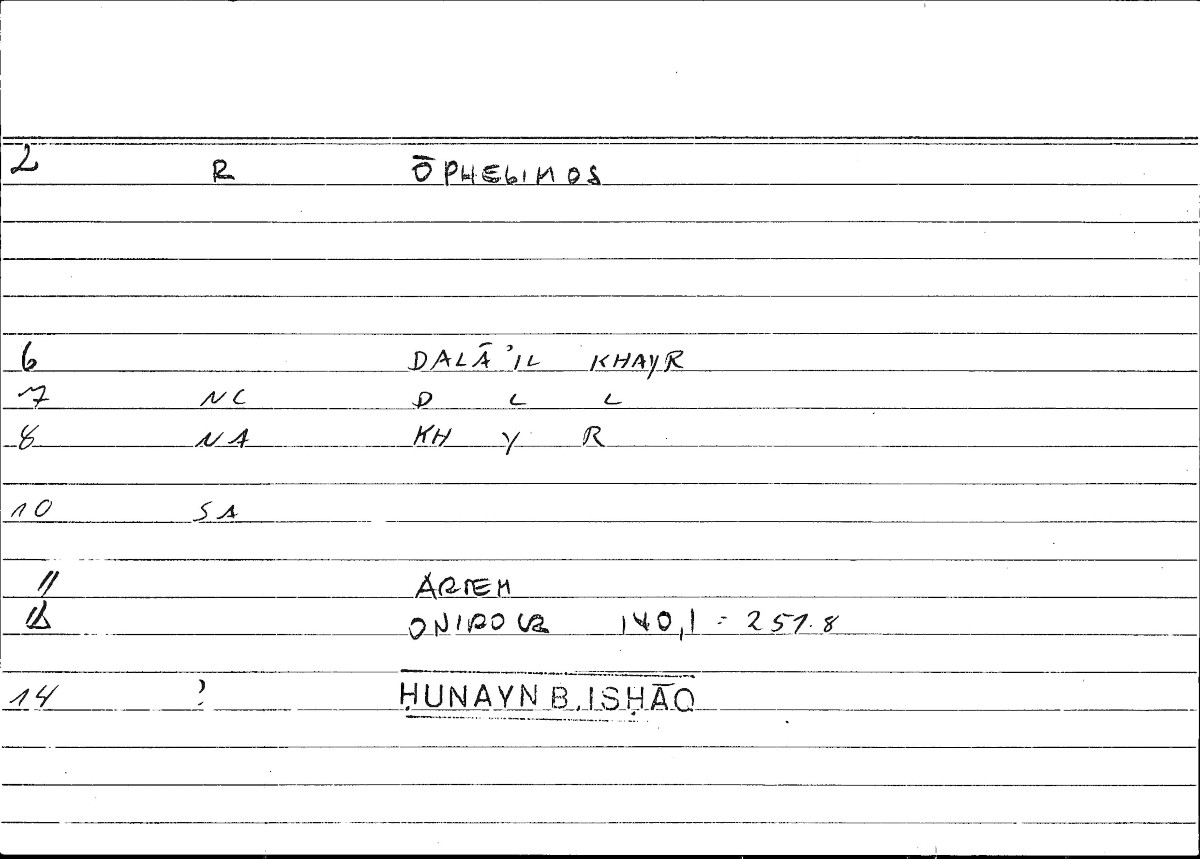 2 R ŌPHELIMOS
6 DALĀ'IL KHAYR
7 NC D L L
8 NA KH Y R
10 SA
11 ARTEM
12 ONIROCR 140,1 = 251.8
14 ? ḤUNAYN B. ISḤĀQ